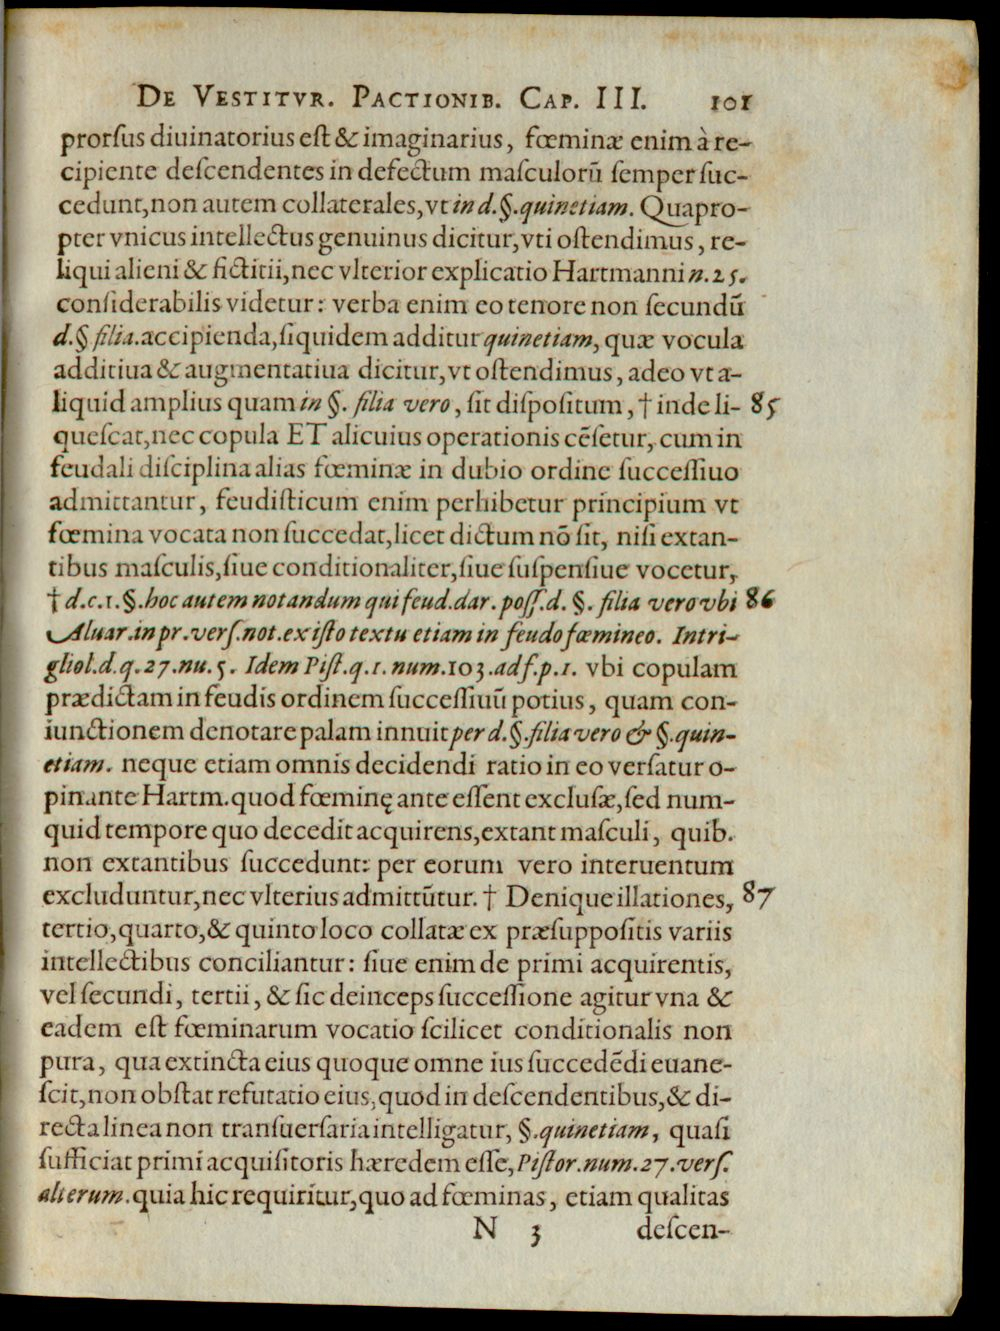 DE VESTITVR. PACTIONIB. CAP. III. 101
prorſus diuinatorius eſt & imaginarius, fœminæ enim à re-
cipiente deſcendentes in defectum maſculorū ſemper ſuc-
cedunt, non autem collaterales, vt in d. §. quinetiam. Quapro-
pter vnicus intellectus genuinus dicitur, vti oſtendimus, re-
liqui alieni & fictitii, nec vlterior explicatio Hartmanni n. 25.
conſiderabilis videtur: verba enim eo tenore non ſecundū
d. § filia. accipienda, ſiquidem additur quinetiam, quæ vocula
additiua & augmentatiua dicitur, vt oſtendimus, adeo vt a-
liquid amplius quam in §. filia vero, ſit diſpoſitum, † inde li- 85
queſcat, nec copula ET alicuius operationis cēſetur, cum in
feudali diſciplina alias fœminæ in dubio ordine ſucceſſiuo
admittantur, feudiſticum enim perhibetur principium vt
fœmina vocata non ſuccedat, licet dictum nō ſit, niſi extan-
tibus maſculis, ſiue conditionaliter, ſiue ſuſpenſiue vocetur,
† d. c. 1. §. hoc autem notandum qui feud. dar. poſſ. d. §. filia vero vbi 86
Aluar. in pr. verſ. not. ex iſto textu etiam in feudo fœmineo. Intri-
gliol. d. q. 27. nu. 5. Idem Piſt. q. 1. num. 103. ad f. p. 1. vbi copulam
prædictam in feudis ordinem ſucceſſiuū potius, quam con-
iunctionem denotare palam innuit per d. §. filia vero & §. quin-
etiam. neque etiam omnis decidendi ratio in eo verſatur o-
pinante Hartm. quod fœminę ante eſſent excluſæ, ſed num-
quid tempore quo decedit acquirens, extant maſculi, quib.
non extantibus ſuccedunt: per eorum vero interuentum
excluduntur, nec vlterius admittūtur. † Denique illationes, 87
tertio, quarto, & quinto loco collatæ ex præſuppoſitis variis
intellectibus conciliantur: ſiue enim de primi acquirentis,
vel ſecundi, tertii, & ſic deinceps ſucceſſione agitur vna &
eadem eſt fœminarum vocatio ſcilicet conditionalis non
pura, qua extincta eius quoque omne ius ſuccedēdi euane-
ſcit, non obſtat refutatio eius, quod in deſcendentibus, & di-
recta linea non tranſuerſaria intelligatur, §. quinetiam, quaſi
ſufficiat primi acquiſitoris hæredem eſſe, Piſtor. num. 27. verſ.
alterum. quia hic requiritur, quo ad fœminas, etiam qualitas
N 3 deſcen-